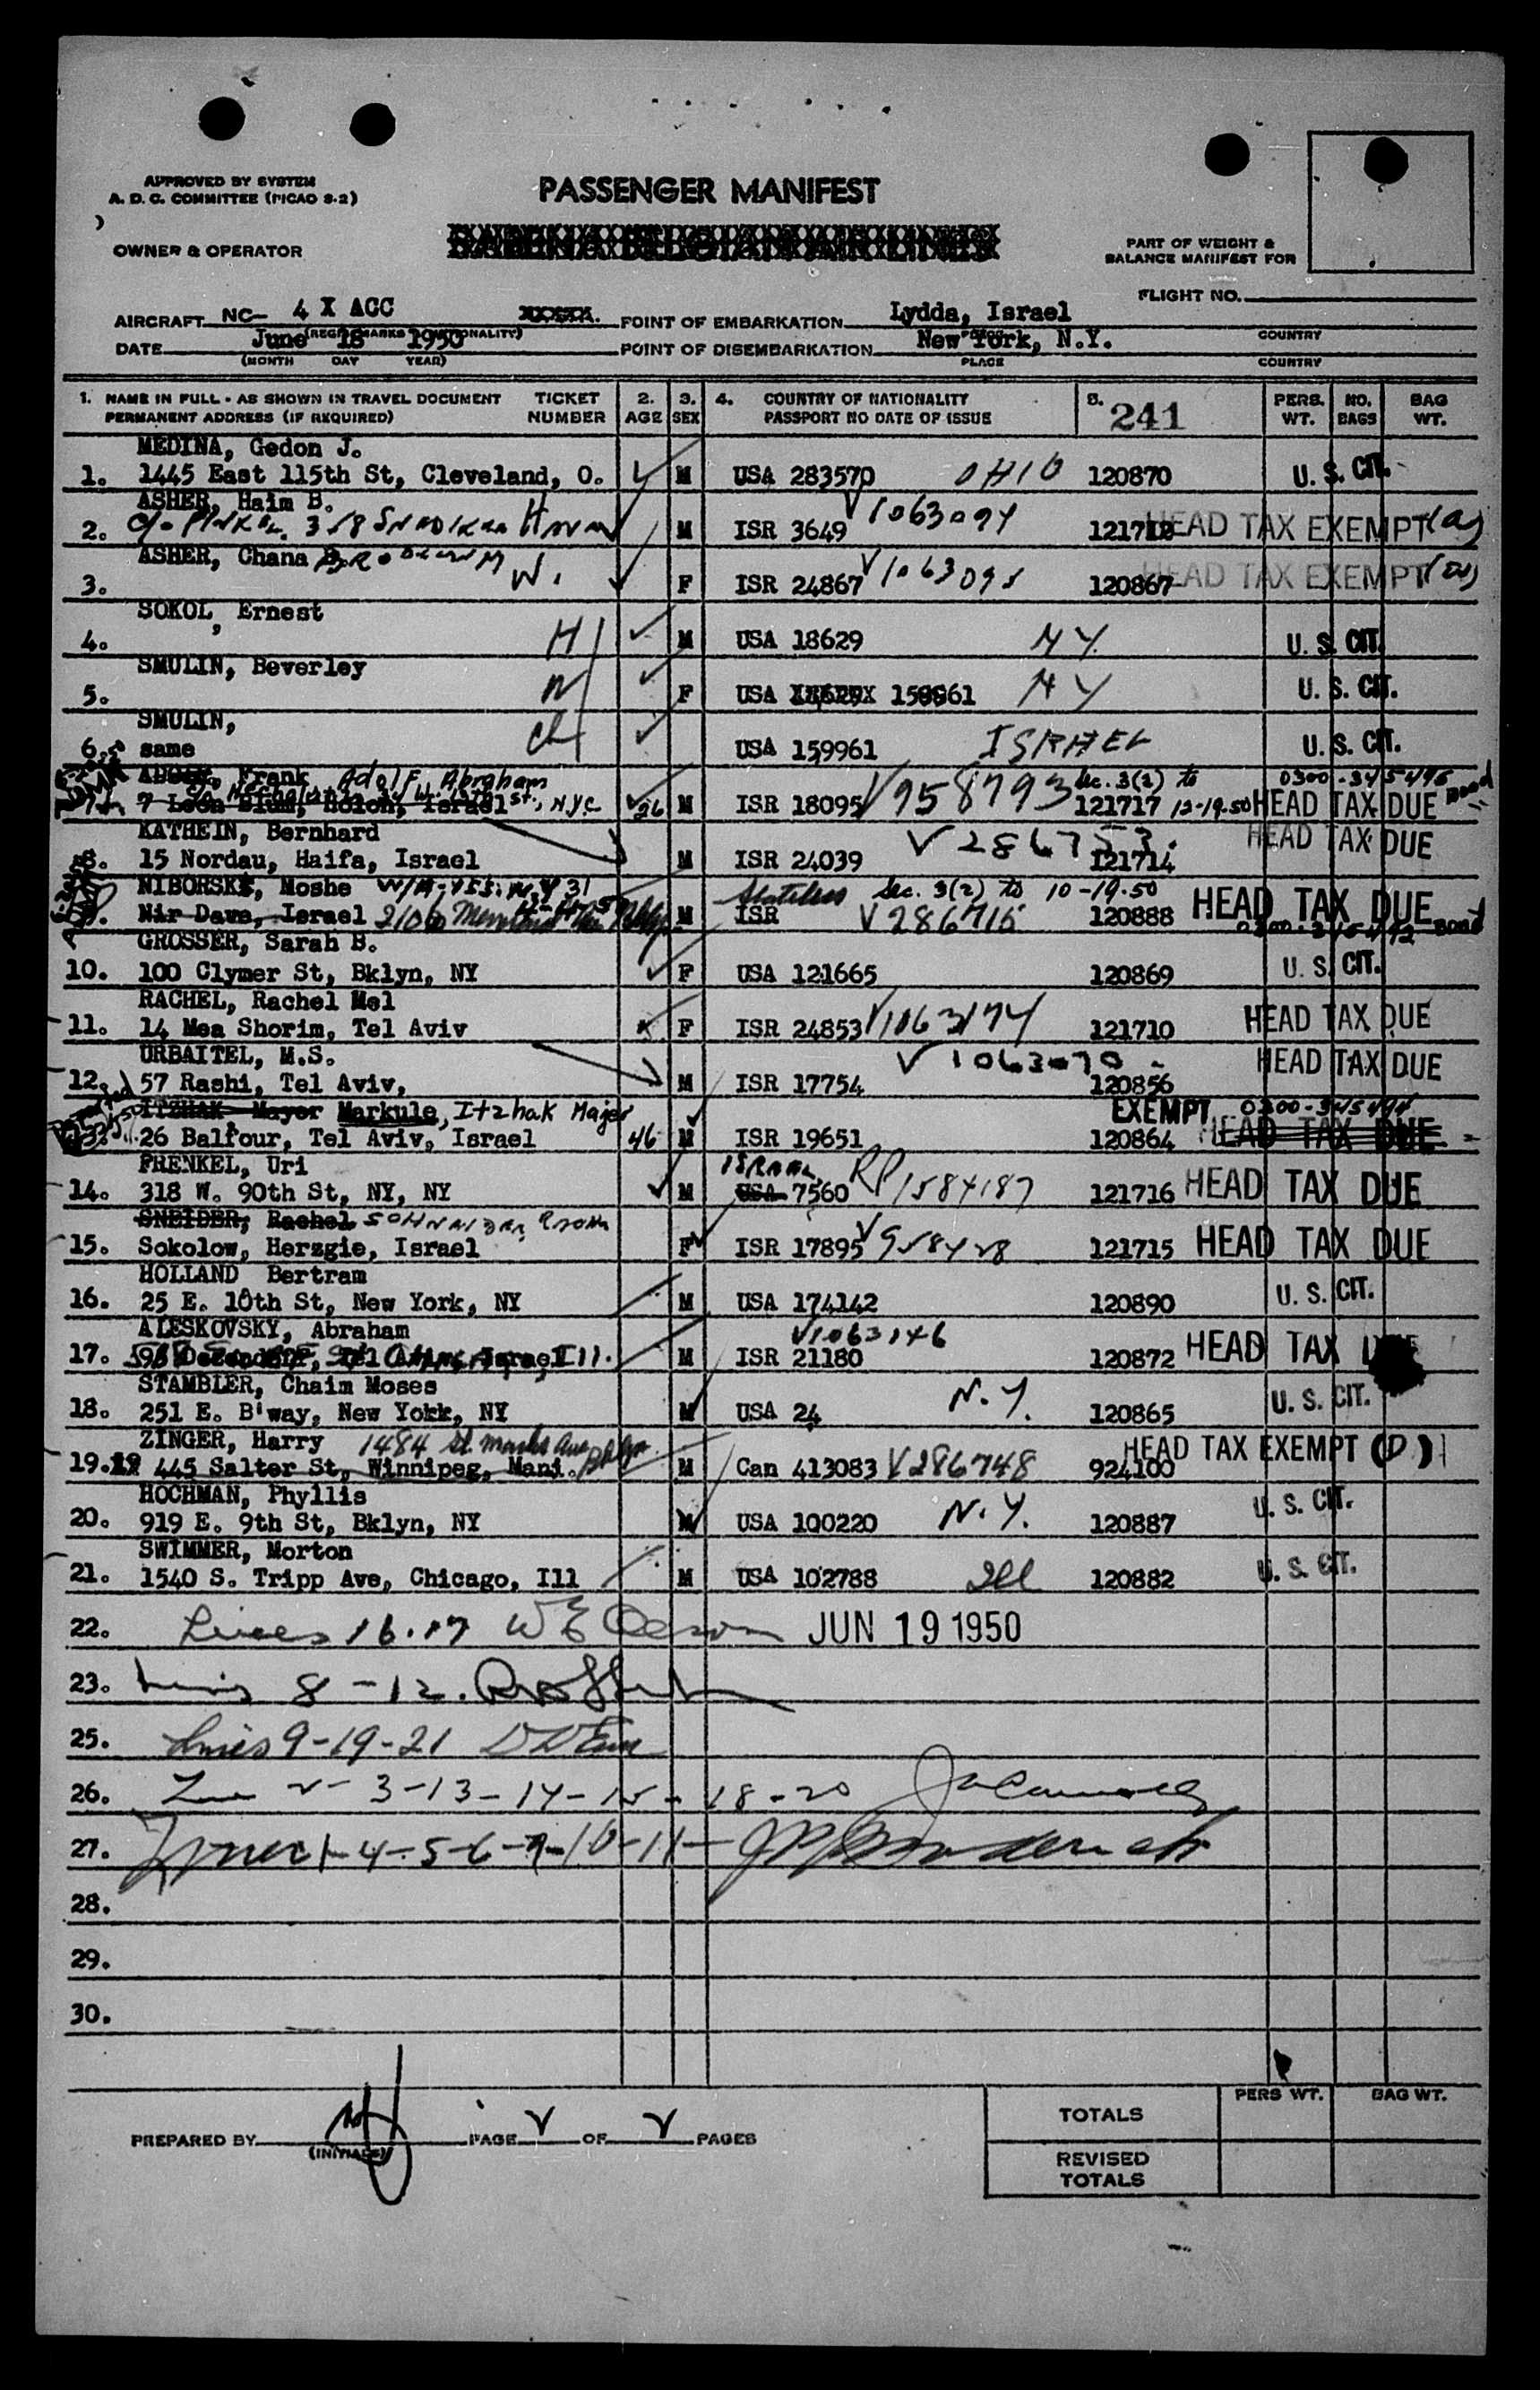 APPROVED BY SYSTEM
A. D. C. COMMITTEE (PICAO S-2)
PASSENGER MANIFEST
OWNER & OPERATOR
SABENA BELGIAN AIR LINES
PART OF WEIGHT &
BALANCE MANIFEST FOR
FLIGHT NO.
AIRCRAFT NC- 4 X ACC POINT OF EMBARKATION Lydda, Israel COUNTRY
DATE June 18 1950 POINT OF DISEMBARKATION New York, N.Y.
(MONTH DAY YEAR) PLACE COUNTRY
1. NAME IN FULL - AS SHOWN IN TRAVEL DOCUMENT TICKET 2. 3. 4. COUNTRY OF NATIONALITY 5. 241 PERS. NO. BAG
PERMANENT ADDRESS (IF REQUIRED) NUMBER AGE SEX PASSPORT NO DATE OF ISSUE WT. BAGS WT.
MEDINA, Gedon J.
1. 1445 East 115th St, Cleveland, O. M USA 283570 OHIO 120870 U. S. CIT.
ASHER, Haim B.
2. c/o 318 M ISR 3649 V1063094 HEAD TAX EXEMPT (a)
ASHER, Chana
3. W. F ISR 24867 V1063095 120867 HEAD TAX EXEMPT
SOKOL, Ernest
4. H M USA 18629 NY U. S. CIT.
SMULIN, Beverley
5. W F USA 159961 NY U. S. CIT.
SMULIN,
6. same Ch USA 159961 ISRAEL U. S. CIT.
Frank Adolf Abraham Sec. 3(2) to 0300-345495
7. 7 Leon Blum, Holon, Israel N.Y.C. 26 M ISR 18095 V958793 121717 12-19-50 HEAD TAX DUE Bond
KATHEIN, Bernhard
8. 15 Nordau, Haifa, Israel M ISR 24039 V286753 121714 HEAD TAX DUE
NIBORSKI, Moshe Stateless Sec. 3(2) to 10-19-50
9. Nir Dave, Israel 2106 M ISR V286715 120888 HEAD TAX DUE
GROSSER, Sarah B.
10. 100 Clymer St, Bklyn, NY F USA 121665 120869 U. S. CIT.
RACHEL, Rachel Mel
11. 14 Mea Shorim, Tel Aviv F ISR 24853 V1063174 121710 HEAD TAX DUE
URBAITEL, M.S.
12. 57 Rashi, Tel Aviv, M ISR 17754 V1063070 120856 HEAD TAX DUE
ITZHAK Mayer Markule, Itzhak Majer EXEMPT 0300-345494
13. 26 Balfour, Tel Aviv, Israel 46 M ISR 19651 120864 HEAD TAX DUE
FRENKEL, Uri
14. 318 W. 90th St, NY, NY M USA 7560 RP1584187 121716 HEAD TAX DUE
SNEIDER, Rachel
15. Sokolow, Herzgie, Israel F ISR 17895 V958428 121715 HEAD TAX DUE
HOLLAND Bertram
16. 25 E. 10th St, New York, NY M USA 174142 120890 U. S. CIT.
ALESKOVSKY, Abraham
17. Ill. M ISR 21180 V1063146 120872 HEAD TAX DUE
STAMBLER, Chaim Moses
18. 251 E. B'way, New Yokk, NY M USA 24 N.Y. 120865 U. S. CIT.
ZINGER, Harry 1484 St. Marks Ave
19. 445 Salter St, Winnipeg, Mani. Bklyn M Can 413083 V286748 924100 HEAD TAX EXEMPT (D)
HOCHMAN, Phyllis
20. 919 E. 9th St, Bklyn, NY M USA 100220 N.Y. 120887 U. S. CIT.
SWIMMER, Morton
21. 1540 S. Tripp Ave, Chicago, Ill M USA 102788 Ill 120882 U. S. CIT.
22. Lines 16.17 JUN 19 1950
23. Lines 8-12.
25. Lines 9-19-21
26. 3-13-14-15-18-20
27. 4-5-6-7-10-11
28.
29.
30.
PREPARED BY (INITIALS) PAGE OF PAGES
PERS WT. BAG WT.
TOTALS
REVISED
TOTALS